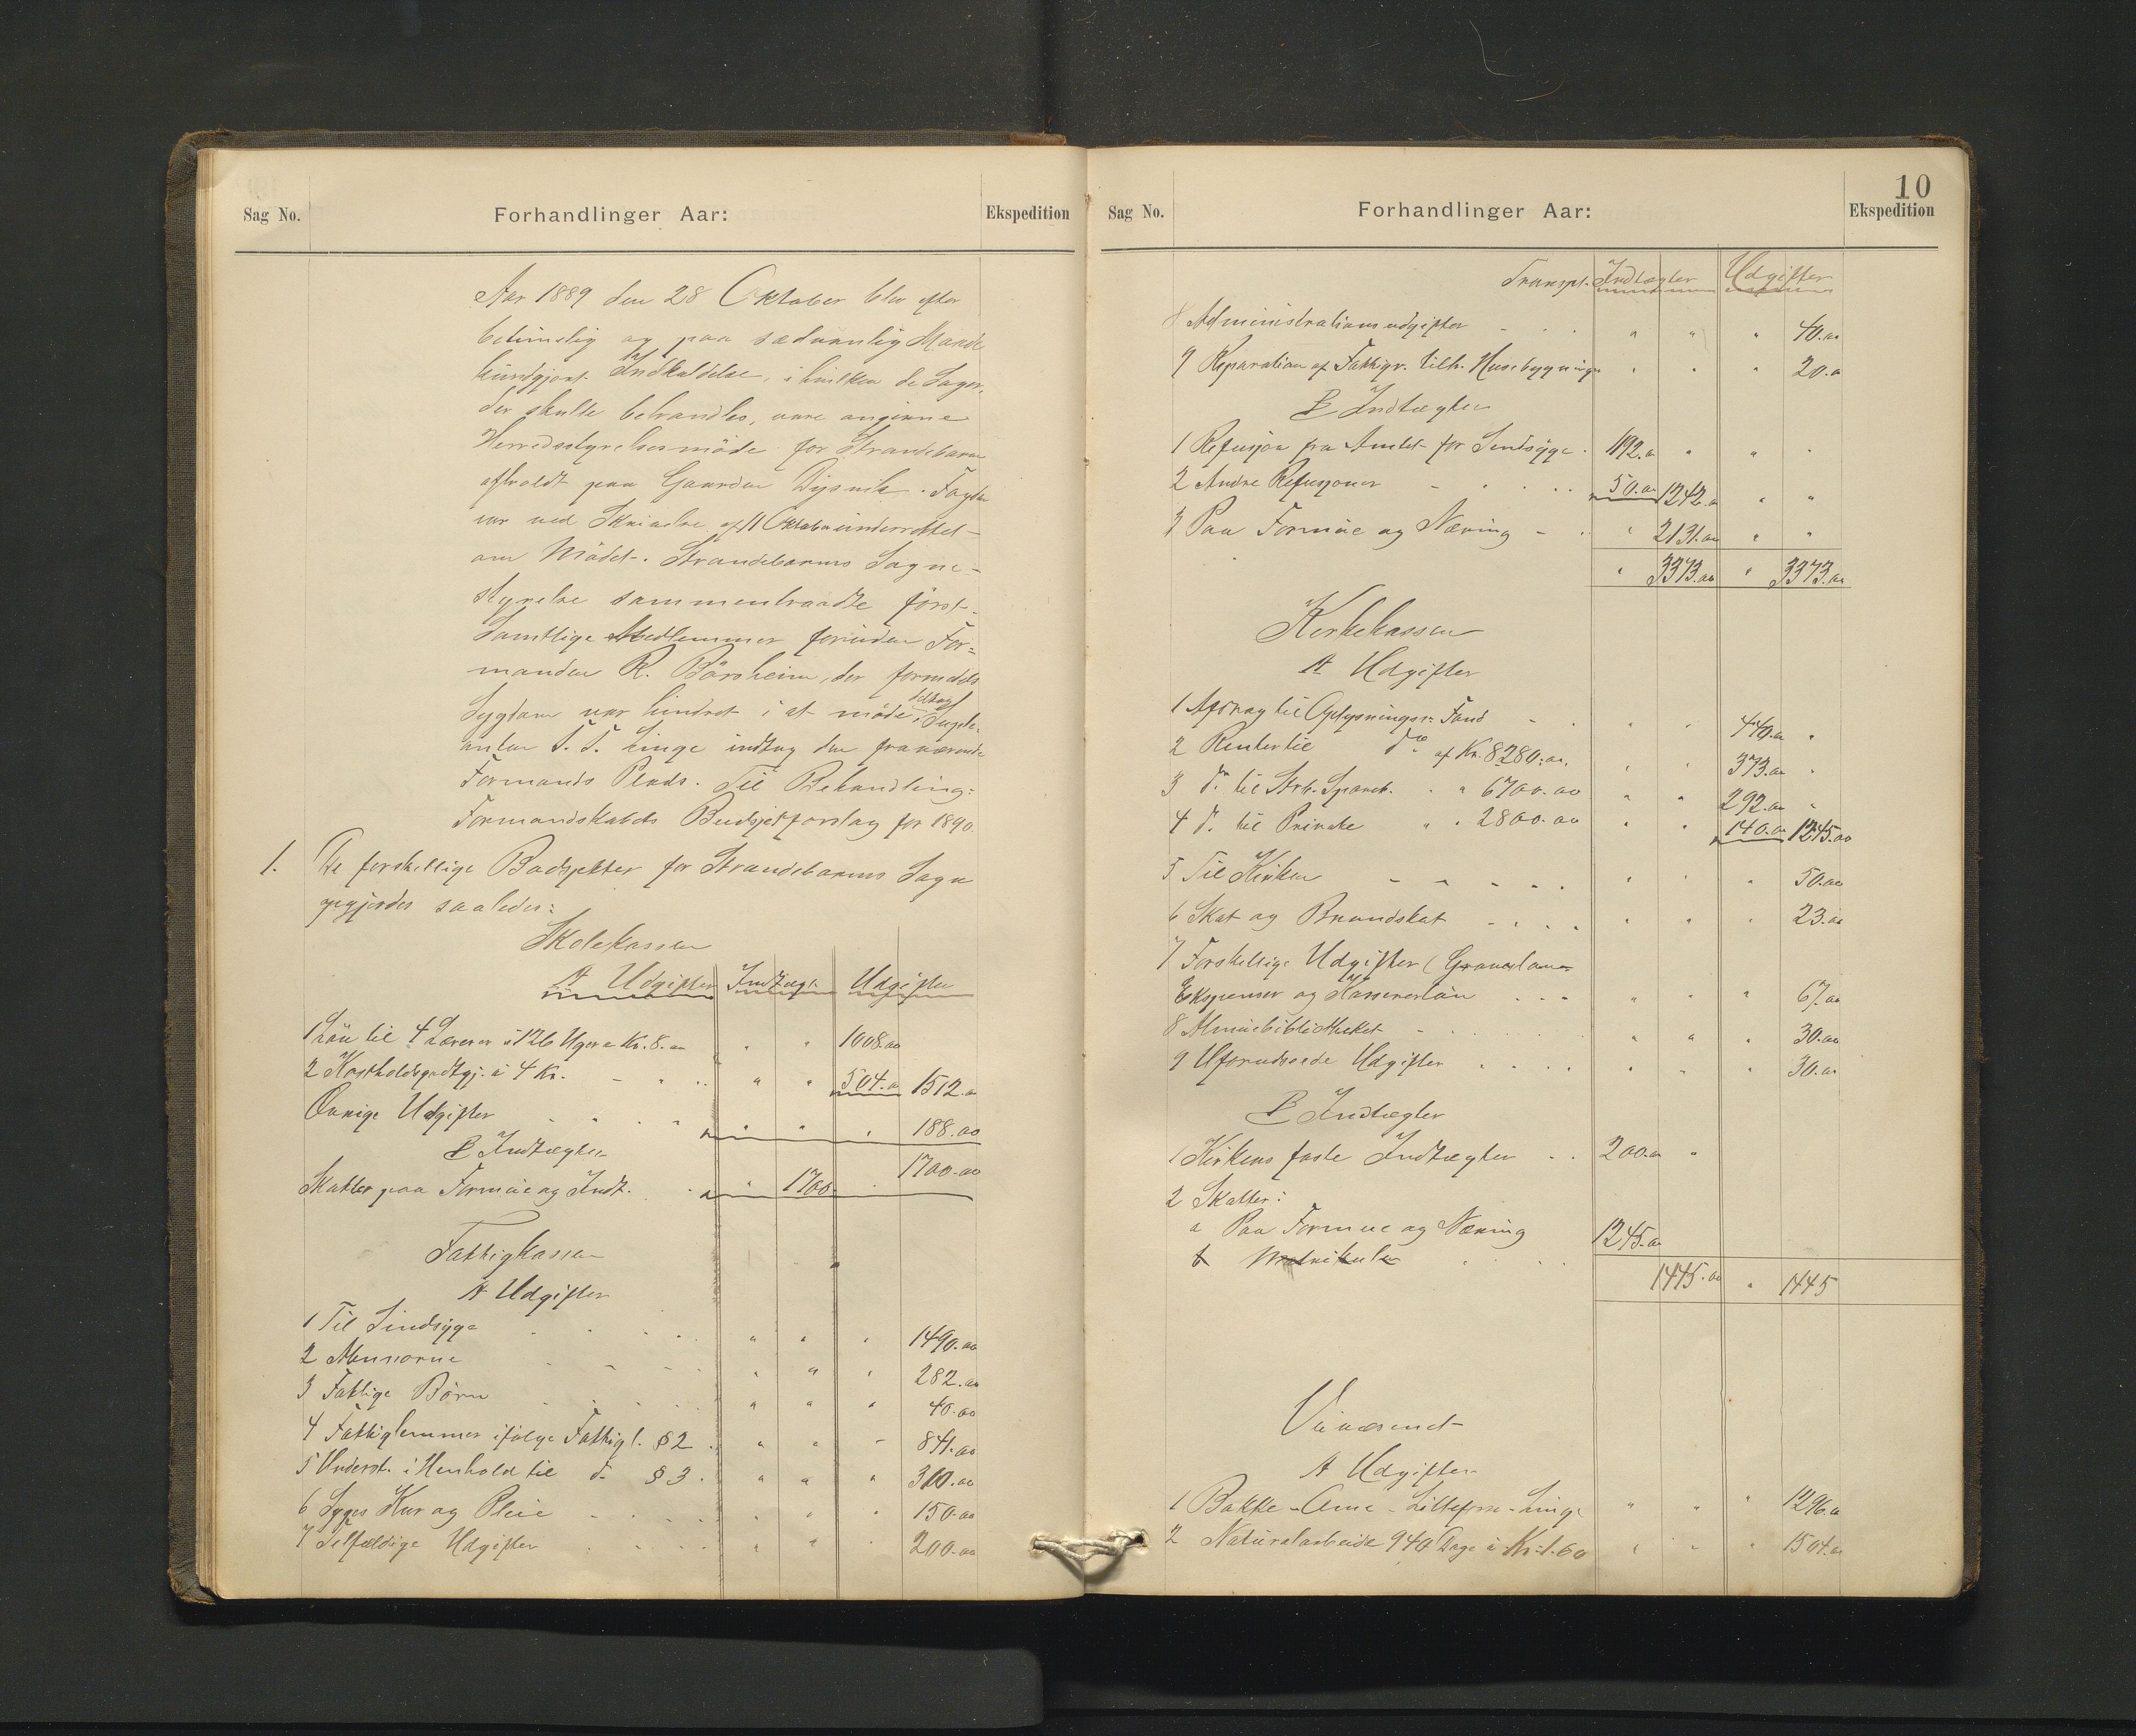 Sag No. Forhandlinger Aar: Ekspedition
Aar 1889 den 28 Oktober blev efter
betimelig og paa sædvanlig Maade
kundgjort Indkaldelse, i hvilken de Sager,
der skulde behandles, vare angivne
Herredsstyrelsesmöde for Strandebarm
afholdt paa Gaarden Fogden
var ved Skrivelse af 11 Oktober underrettet
om Mödet. Strandebarms Sogne-
styrelse sammentraadte först.
Samtlige Medlemmer foruden For=
manden R. Börsheim, der formedelst
Sygdom var hindret i at möde deltog Suple-
anten T. T. Linge indtog den fraværende
Formands Plads. Til Behandling:
Formandskabets Budsjetforslag for 1890.
1. De forskellige Budsjetter for Strandebarms Sogn
opgjordes saaledes:
Skolekassen
A Udgifter Indtægt. Udgifter
1 Lön til 4 Lærere i 126 Uger a Kr. 8.00 " " 1008.00
2 Kostholdsgodtgj. a 4 Kr. " " 504.00 1512.00
Övrige Udgifter " " " 188.00
B Indtægter 1700.00
Skatter paa Formue og Indt. " 1700. "
Fattigkassen
A Udgifter
1 Til Sindsyge " " " 1490.00
2 " " " 282.00
3 Fattige Börn " " " 40.00
4 Fattiglemmer ifölge Fattigl. § 2 " " " 841.00
5 Underst. i Henhold til do § 3. " " " 310.00
6 Syges Kur og Pleie " " " 150.00
7 Tilfældige Udgifter " " " 200.00
10
Sag No. Forhandlinger Aar: Ekspedition
Transpt. Indtægter Udgifter
8 Administrationsudgifter " " " 40.00
9 Reparation af Fattigv. tilh. Husebygninger " " " 20.00
B Indtægter
1 Refusjon fra Amtet for Sindsyge 1192.00 " " "
2 Andre Refusjoner 50.00 1242.00 " "
3 Paa Formue og Næring " 2131.00 " "
" 3373.00 " 3373.00
Kirkekassen
A Udgifter
1 Afdrag til Oplysnings-Fond " " 440.00 "
2 Renter til do af Kr. 8280.00. " " 373.00 "
3 do til Strb. Spareb. " " 6700.00 " " 292.00 "
4 do til Private " " 2800.00 " " 140.00 1245.00
5 Til Kirken " " " 50.00
6 Skat og Brandskat " " " 23.00
7 Forskellige Udgifter (
Ekspenser og Kassererlön " " " 67.00
8 Almuebibliotheket " " " 30.00
9 Uforudseede Udgifter " " " 30.00
B Indtægter
1 Kirkens faste Indtægter 200.00 "
2 Skatter:
a Paa Formue og Næring 1245.00
b Matrikulen
1445.00 " 1445
Veivæsenet
A Udgifter
1 Bakke - Ome - Linge " " " 1296.00
2 Naturalarbeide 940 Dage a Kr. 1.60 " " " 1504.00